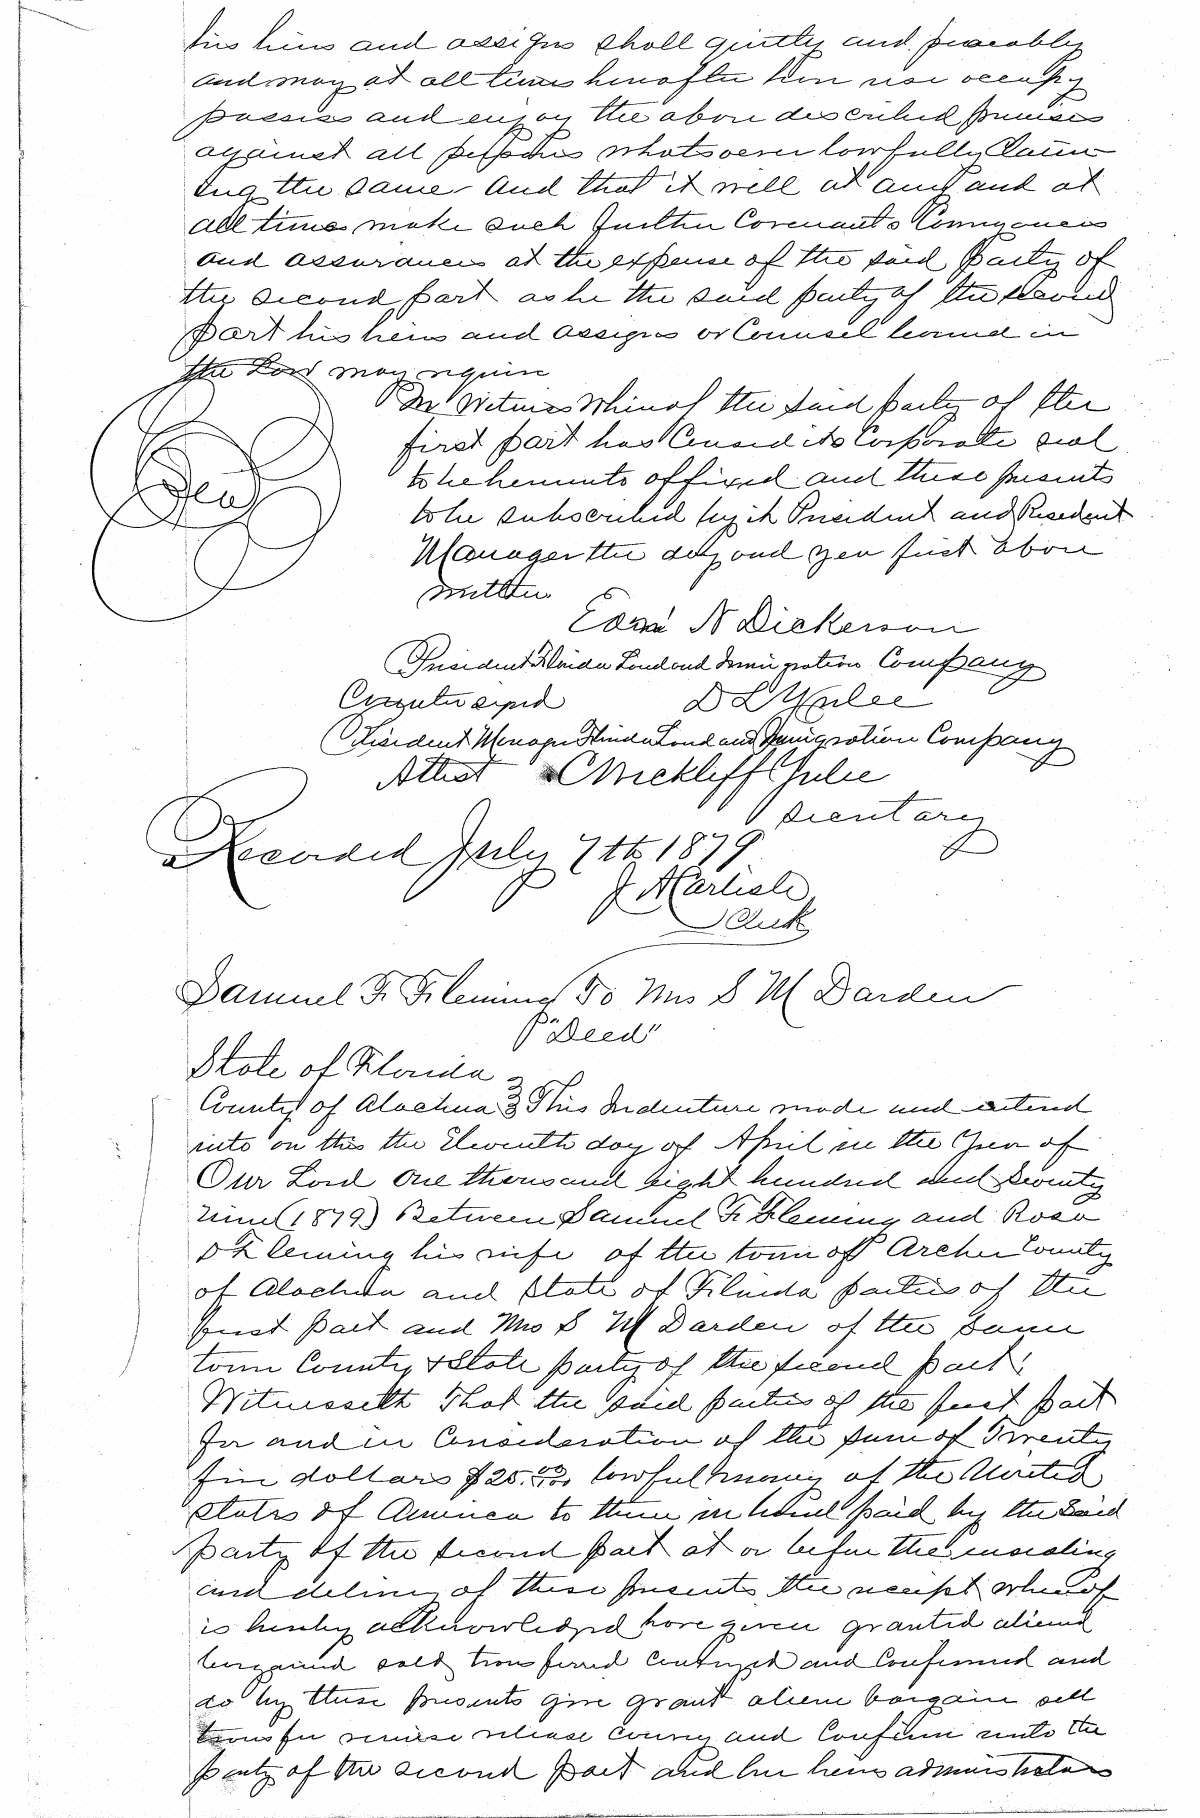 his heirs and assigns shall quietly and peaceably
and may at all times hereafter have use occupy
possess and enjoy the above described premises
against all persons whatsoever lawfully claim
ing the same And that it will at any and at
all times make such further Covenants Conveyances
and assurances at the expense of the said party of
the second part as he the said party of the second
part his heirs and assigns or Counsel learned in
the Law may require
In Witness Whereof the said party of the
first part has Caused its Corporate seal
to be hereunto affixed and these presents
Seal
to be subscribed by its President and Resident
Manager the day and year first above
written
N Dickerson
President Florida Land and Immigration Company
Countersigned D L Yulee
Resident Manager Florida Land and Immigration Company
Attest C Wickliff Yulee
Secretary
Recorded July 7th 1879
J A Carlisle
Clerk
Samuel F. Fleming To Mrs S M Darden
"Deed"
State of Florida
County of Alachua } This Indenture made and entered
into on this the Eleventh day of April in the Year of
Our Lord One thousand eight hundred and Seventy
nine (1879) Between Samuel F. Fleming and Rosa
Fleming his wife of the town of Archer County
of Alachua and State of Florida parties of the
first part and Mrs S M Darden of the same
town County & State party of the second part:
Witnesseth That the said parties of the first part
for and in Consideration of the sum of Twenty
five dollars $25.00/100 lawful money of the United
States of America to them in hand paid by the said
party of the second part at or before the ensealing
and delivery of these presents the receipt whereof
is hereby acknowledged have given granted aliened
bargained sold transferred conveyed and Confirmed and
do by these presents give grant aliene bargain sell
transfer remise release convey and Confirm unto the
party of the second part and her heirs administrators